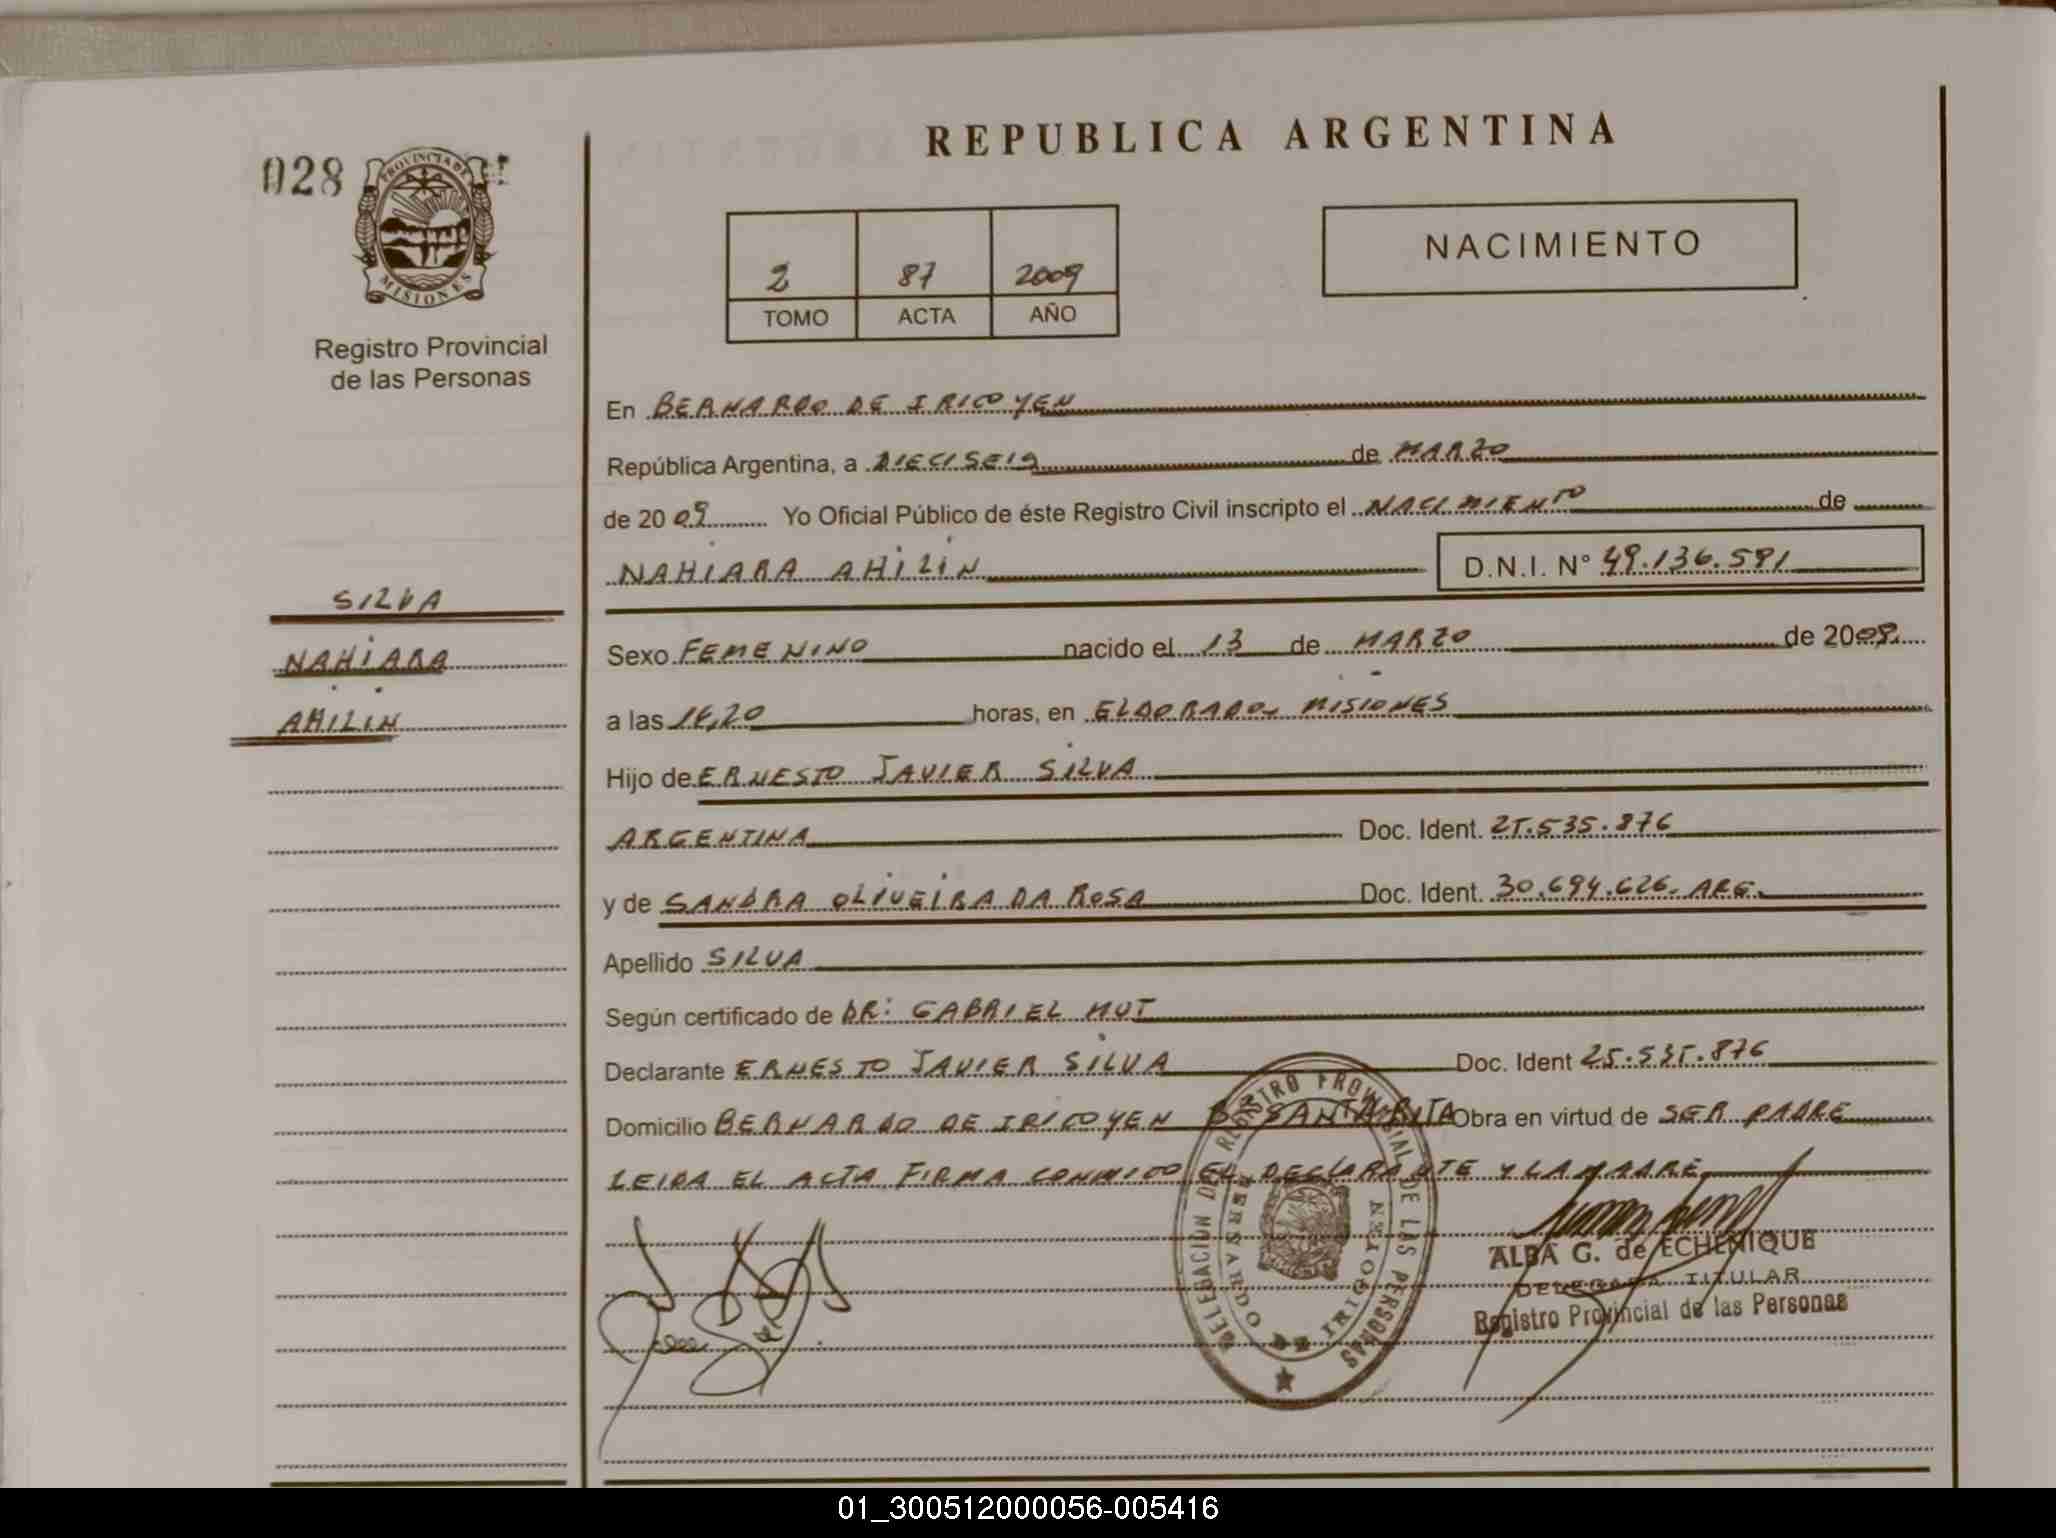 REPUBLICA ARGENTINA
028
PROVINCIA DE
MISIONES
Registro Provincial
de las Personas
2 87 2009
TOMO ACTA AÑO
NACIMIENTO
En BERNARDO DE IRIGOYEN
República Argentina, a DIECISEIS de MARZO
de 2009 Yo Oficial Público de éste Registro Civil inscripto el NACIMIENTO de
NAHIARA AHILIN D.N.I. N° 49.136.591
SILVA
NAHIARA
AHILIN
Sexo FEMENINO nacido el 13 de MARZO de 2009.
a las horas, en ELDORADO, MISIONES
Hijo de ERNESTO JAVIER SILVA
ARGENTINA Doc. Ident. 25.535.876
y de SANDRA OLIVEIRA DA ROSA Doc. Ident. 30.694.626. ARG.
Apellido SILVA
Según certificado de DR: GABRIEL MUT
Declarante ERNESTO JAVIER SILVA Doc. Ident 25.535.876
Domicilio BERNARDO DE IRIGOYEN B° SANTA RITA Obra en virtud de SER PADRE
LEIDA EL ACTA FIRMA CONMIGO EL DECLARANTE Y LA MADRE
DELEGACION DEL REGISTRO PROVINCIAL DE LAS PERSONAS
BERNARDO DE IRIGOYEN
ALBA G. de ECHENIQUE
DELEGADA TITULAR
Registro Provincial de las Personas
01_300512000056-005416